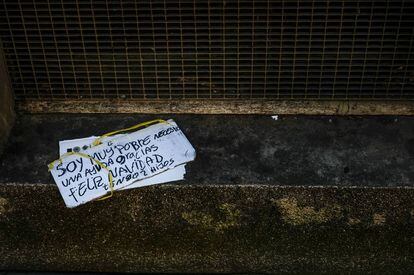 SOY MUY POBRE NECESITO
UNA AYUDA GRACIAS
FELIZ NAVIDAD
TENGO 2 HIJOS